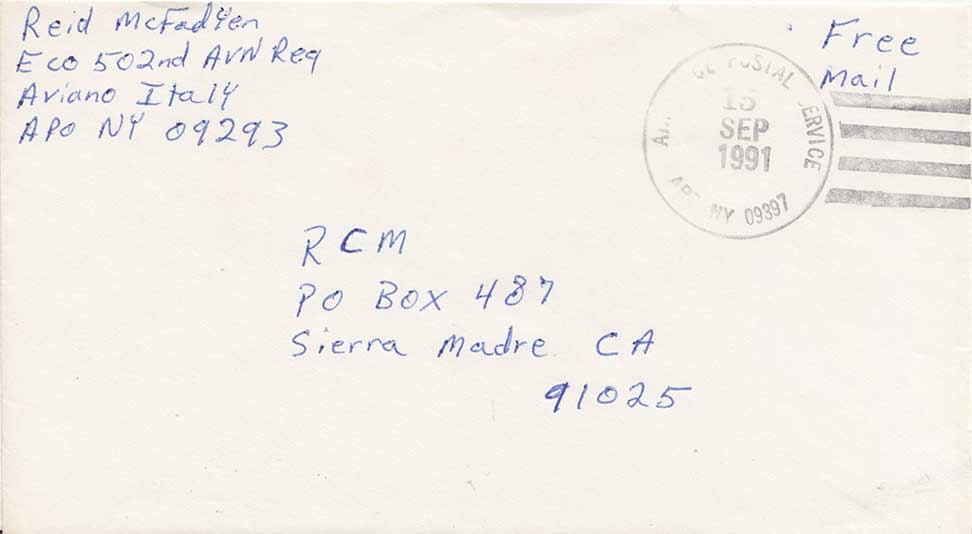 Reid McFadYen
E co 502nd AVN Reg
Aviano Italy
APO NY 09293
Free
Mail
POSTAL SERVICE
15
SEP
1991
NY 09397
RCM
PO Box 487
Sierra Madre CA
91025